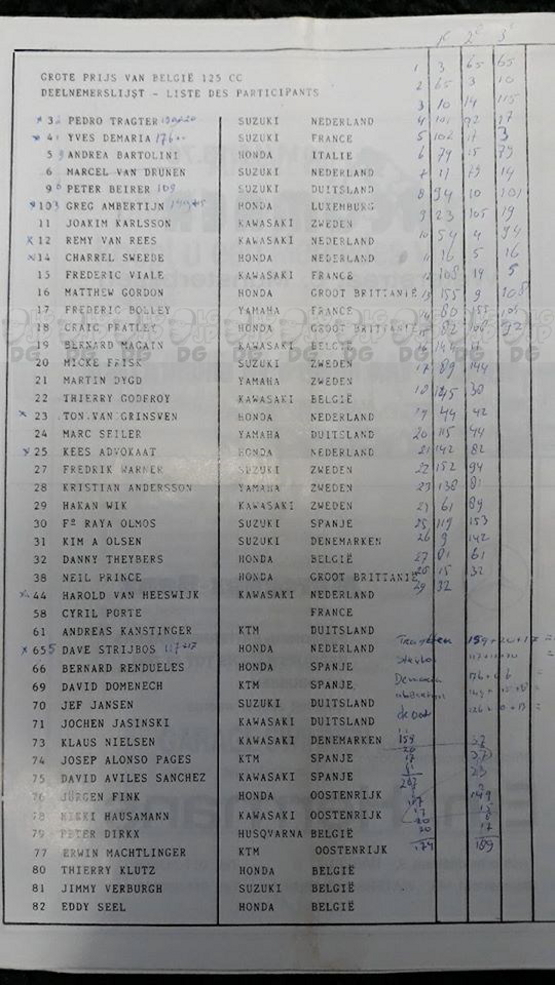 1e 2e 3e
GROTE PRIJS VAN BELGIË 125 CC
DEELNEMERSLIJST - LIJSTE DES PARTICIPANTS
3 PEDRO TRAGTER SUZUKI NEDERLAND
4 YVES DEMARIA SUZUKI FRANCE
5 ANDREA BARTOLINI HONDA ITALIE
6 MARCEL VAN DRUNEN SUZUKI NEDERLAND
9 PETER BEIRER 109 SUZUKI DUITSLAND
10 GREG AMBERTIJN HONDA LUXEMBURG
11 JOAKIM KARLSSON KAWASAKI ZWEDEN
x 12 REMY VAN REES KAWASAKI NEDERLAND
x 14 CHARREL SWEEBE HONDA NEDERLAND
15 FREDERIC VIALE KAWASAKI FRANCE
16 MATTHEW GORDON HONDA GROOT BRITTANIE
17 FREDERIC BOLLEY YAMAHA FRANCE
18 CRAIG PRATLEY HONDA GROOT BRITTANIE
19 BERNARD MAGAIN KAWASAKI BELGIE
20 MICKE FRISK SUZUKI ZWEDEN
21 MARTIN DYGD YAMAHA ZWEDEN
22 THIERRY GODFROY KAWASAKI BELGIË
x 23 TON VAN GRINSVEN HONDA NEDERLAND
24 MARC SEILER YAMAHA DUITSLAND
x 25 KEES ADVOKAAT HONDA NEDERLAND
27 FREDRIK WARNER SUZUKI ZWEDEN
28 KRISTIAN ANDERSSON YAMAHA ZWEDEN
29 HAKAN WIK KAWASAKI ZWEDEN
30 Fº RAYA OLMOS SUZUKI SPANJE
31 KIM A OLSEN SUZUKI DENEMARKEN
32 DANNY THEYBERS HONDA BELGIË
38 NEIL PRINCE HONDA GROOT BRITTANIE
x 44 HAROLD VAN HEESWIJK KAWASAKI NEDERLAND
58 CYRIL PORTE FRANCE
61 ANDREAS KANSTINGER KTM DUITSLAND
x 65 DAVE STRIJBOS HONDA NEDERLAND
66 BERNARD RENDUELES HONDA SPANJE
69 DAVID DOMENECH KTM SPANJE
70 JEF JANSEN SUZUKI DUITSLAND
71 JOCHEN JASINSKI KAWASAKI DUITSLAND
73 KLAUS NIELSEN KAWASAKI DENEMARKEN
74 JOSEP ALONSO PAGES KTM SPANJE
75 DAVID AVILES SANCHEZ KAWASAKI SPANJE
76 JURGEN FINK HONDA OOSTENRIJK
78 NIKKI HAUSAMANN KAWASAKI OOSTENRIJK
79 PETER DIRKX HUSQVARNA BELGIË
77 ERWIN MACHTLINGER KTM OOSTENRIJK
80 THIERRY KLUTZ HONDA BELGIË
81 JIMMY VERBURGH SUZUKI BELGIË
82 EDDY SEEL HONDA BELGIË
1 3 65 65
2 65 3 10
3 10 14 115
4 101 92 17
5 102 17 3
6 79 15 79
7 11 79 14
8 94 10 101
9 23 105 19
10 54 4 94
16 5 16
108 14 5
155 9 108
80 155
82
17 89 144
18 145 30
19 44 42
20 115 44
21 142 82
22 152 94
23 138 81
61 89
25 119 153
26 9 142
27 81 61
28 15 32
29 32